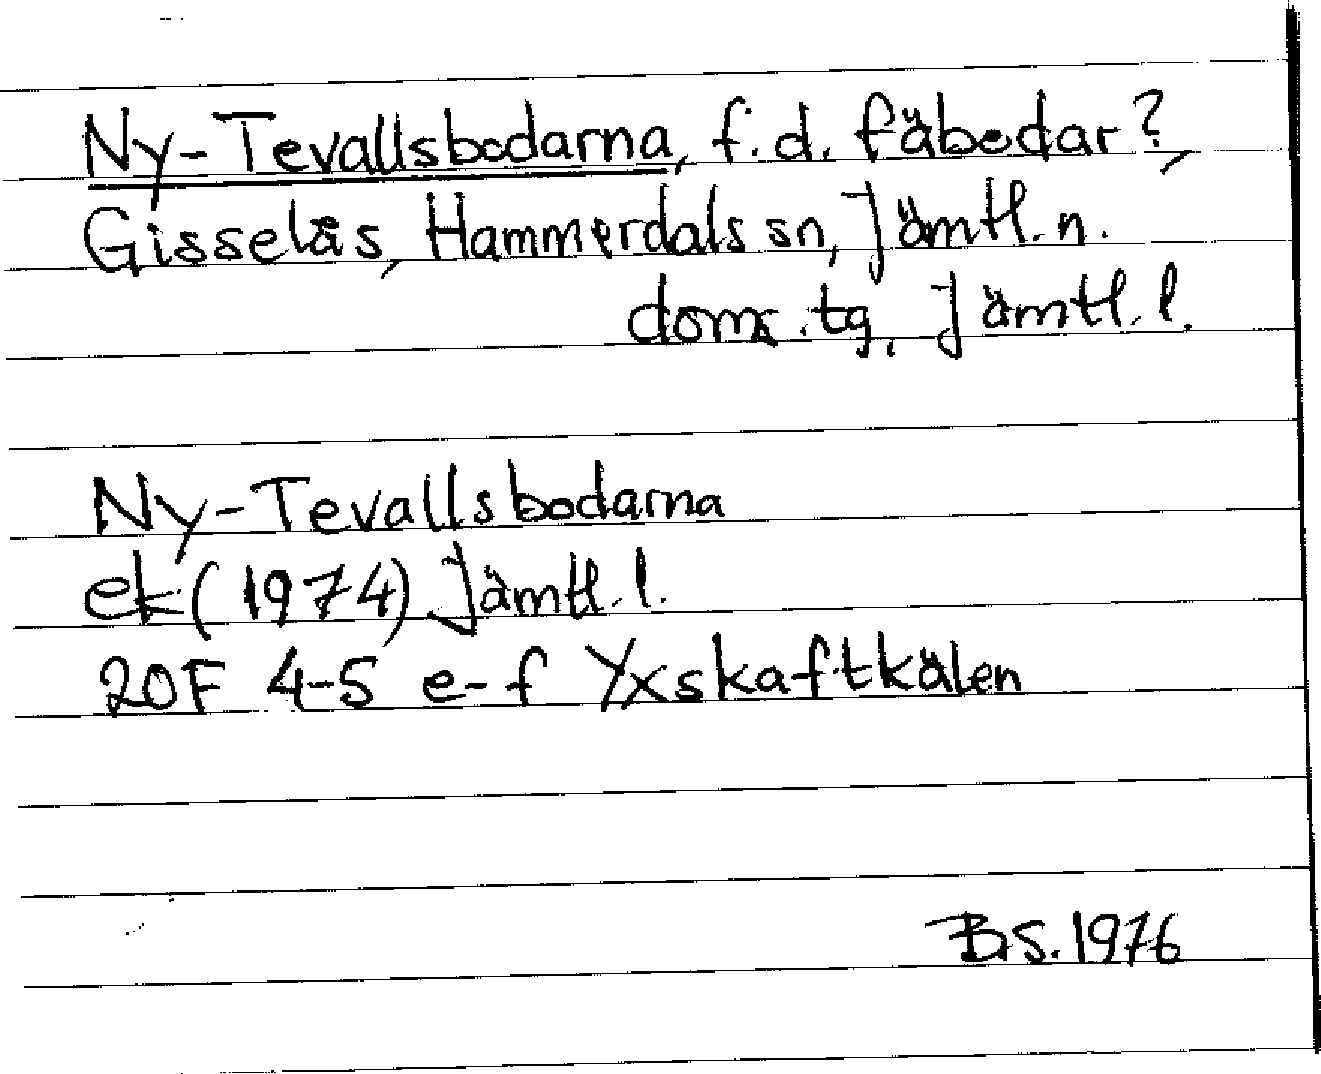 Ny-Tevallsbodarna, f.d. fäbodar?,
Gisselås, Hammerdals sn, Jämtl. n.
doms.tg, Jämtl. l.
Ny-Tevallsbodarna
ek (1974) Jämtl. l.
20F 4-5 e-f Yxskaftkälen
B.S. 1976